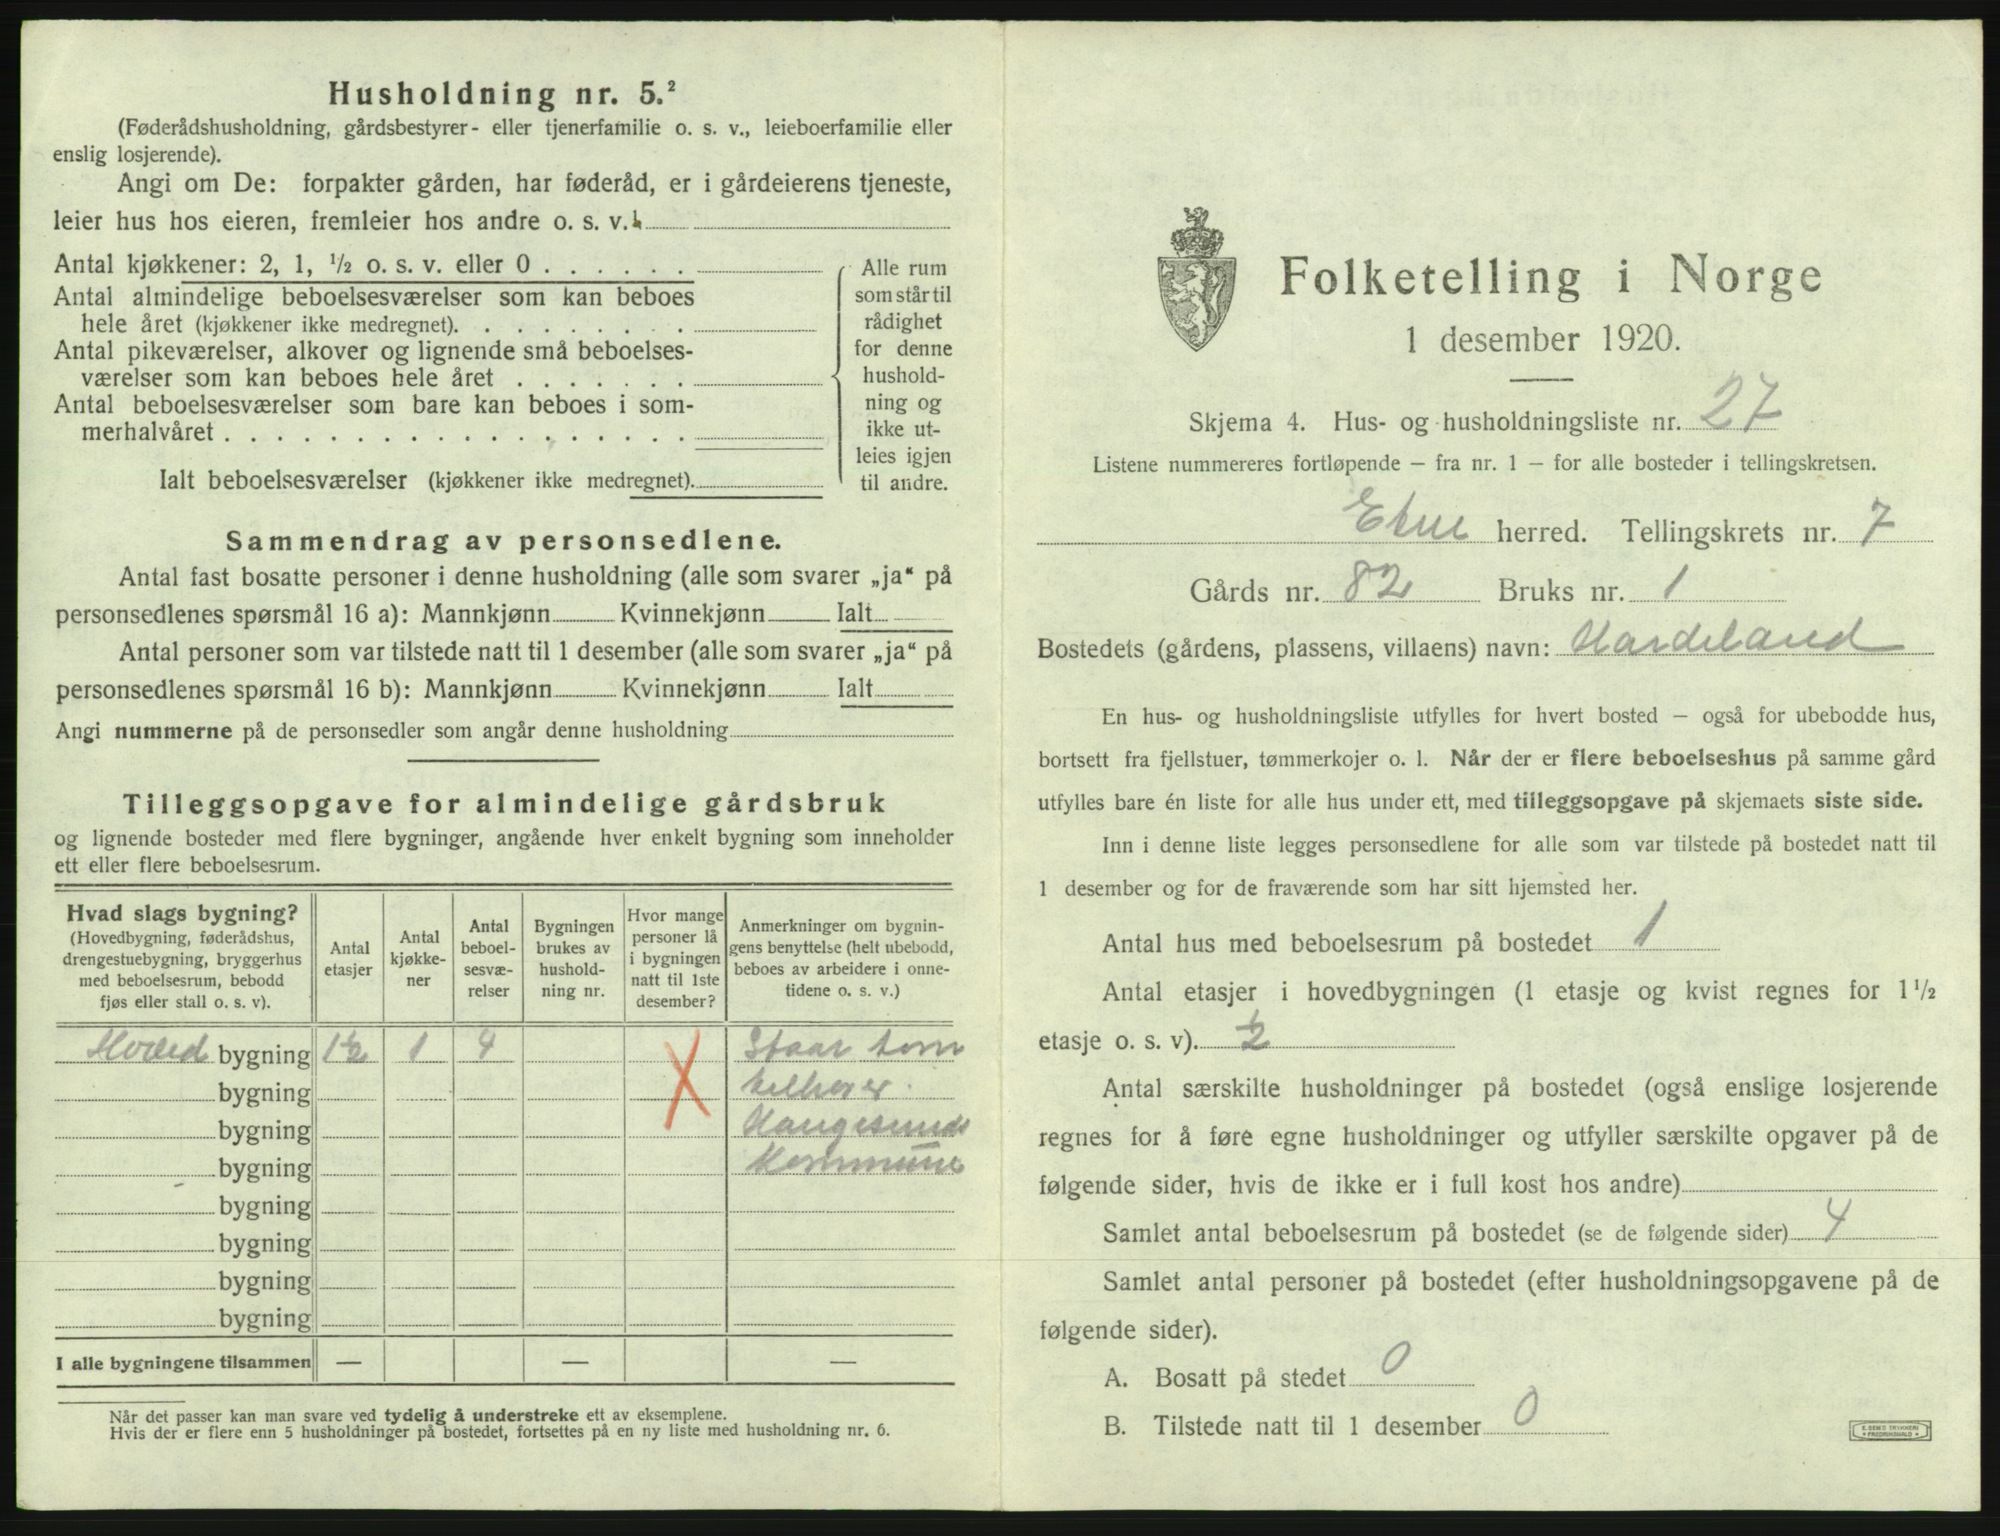 Husholdning nr. 5.²
(Føderådshusholdning, gårdsbestyrer- eller tjenerfamilie o. s. v., leieboerfamilie eller
enslig losjerende).
Angi om De: forpakter gården, har føderåd, er i gårdeierens tjeneste,
leier hus hos eieren, fremleier hos andre o. s. v.¹
Antal kjøkkener: 2, 1, ½ o. s. v. eller 0 . . . . . .
Antal almindelige beboelsesværelser som kan beboes
hele året (kjøkkener ikke medregnet). . . . . . . . .
Antal pikeværelser, alkover og lignende små beboelses-
værelser som kan beboes hele året . . . . . . .
Antal beboelsesværelser som bare kan beboes i som-
merhalvåret . . . . . . . . . . . . . . . . . .
Ialt beboelsesværelser (kjøkkener ikke medregnet).
Alle rum
som står til
rådighet
for denne
hushold-
ning og
ikke ut-
leies igjen
til andre.
Sammendrag av personsedlene.
Antal fast bosatte personer i denne husholdning (alle som svarer „ja“ på
personsedlenes spørsmål 16 a): Mannkjønn Kvinnekjønn Ialt
Antal personer som var tilstede natt til 1 desember (alle som svarer „ja“ på
personsedlenes spørsmål 16 b): Mannkjønn Kvinnekjønn Ialt
Angi nummerne på de personsedler som angår denne husholdning
Tilleggsopgave for almindelige gårdsbruk
og lignende bosteder med flere bygninger, angående hver enkelt bygning som inneholder
ett eller flere beboelsesrum.
Hvad slags bygning?
(Hovedbygning, føderådshus,
drengestuebygning, bryggerhus
med beboelsesrum, bebodd
fjøs eller stall o. s. v).
Antal
etasjer
Antal
kjøkke-
ner
Antal
beboel-
sesvæ-
relser
Bygningen
brukes av
hushold-
ning nr.
Hvor mange
personer lå
i bygningen
natt til 1ste
desember?
Anmerkninger om bygnin-
gens benyttelse (helt ubebodd,
beboes av arbeidere i onne-
tidene o. s. v.)
Hoved bygning 1½ 1 4 X Staar tom
bygning tilhører
bygning Haugesunds
bygning Kommune
bygning
bygning
bygning
bygning
I alle bygningene tilsammen — — —
Når det passer kan man svare ved tydelig å understreke ett av eksemplene.
Hvis der er flere enn 5 husholdninger på bostedet, fortsettes på en ny liste med husholdning nr. 6.
Folketelling i Norge
1 desember 1920.
Skjema 4. Hus- og husholdningsliste nr. 27
Listene nummereres fortløpende – fra nr. 1 – for alle bosteder i tellingskretsen.
Etne herred. Tellingskrets nr. 7
Gårds nr. 82 Bruks nr. 1
Bostedets (gårdens, plassens, villaens) navn: Hardeland
En hus- og husholdningsliste utfylles for hvert bosted – også for ubebodde hus,
bortsett fra fjellstuer, tømmerkojer o. l. Når der er flere beboelseshus på samme gård
utfylles bare én liste for alle hus under ett, med tilleggsopgave på skjemaets siste side.
Inn i denne liste legges personsedlene for alle som var tilstede på bostedet natt til
1 desember og for de fraværende som har sitt hjemsted her.
Antal hus med beboelsesrum på bostedet 1
Antal etasjer i hovedbygningen (1 etasje og kvist regnes for 1½
etasje o. s. v). ½
Antal særskilte husholdninger på bostedet (også enslige losjerende
regnes for å føre egne husholdninger og utfyller særskilte opgaver på de
følgende sider, hvis de ikke er i full kost hos andre)
Samlet antal beboelsesrum på bostedet (se de følgende sider) 4
Samlet antal personer på bostedet (efter husholdningsopgavene på de
følgende sider).
A. Bosatt på stedet 0
B. Tilstede natt til 1 desember 0
E. SEM'S TRYKKERI
FREDRIKSHALD